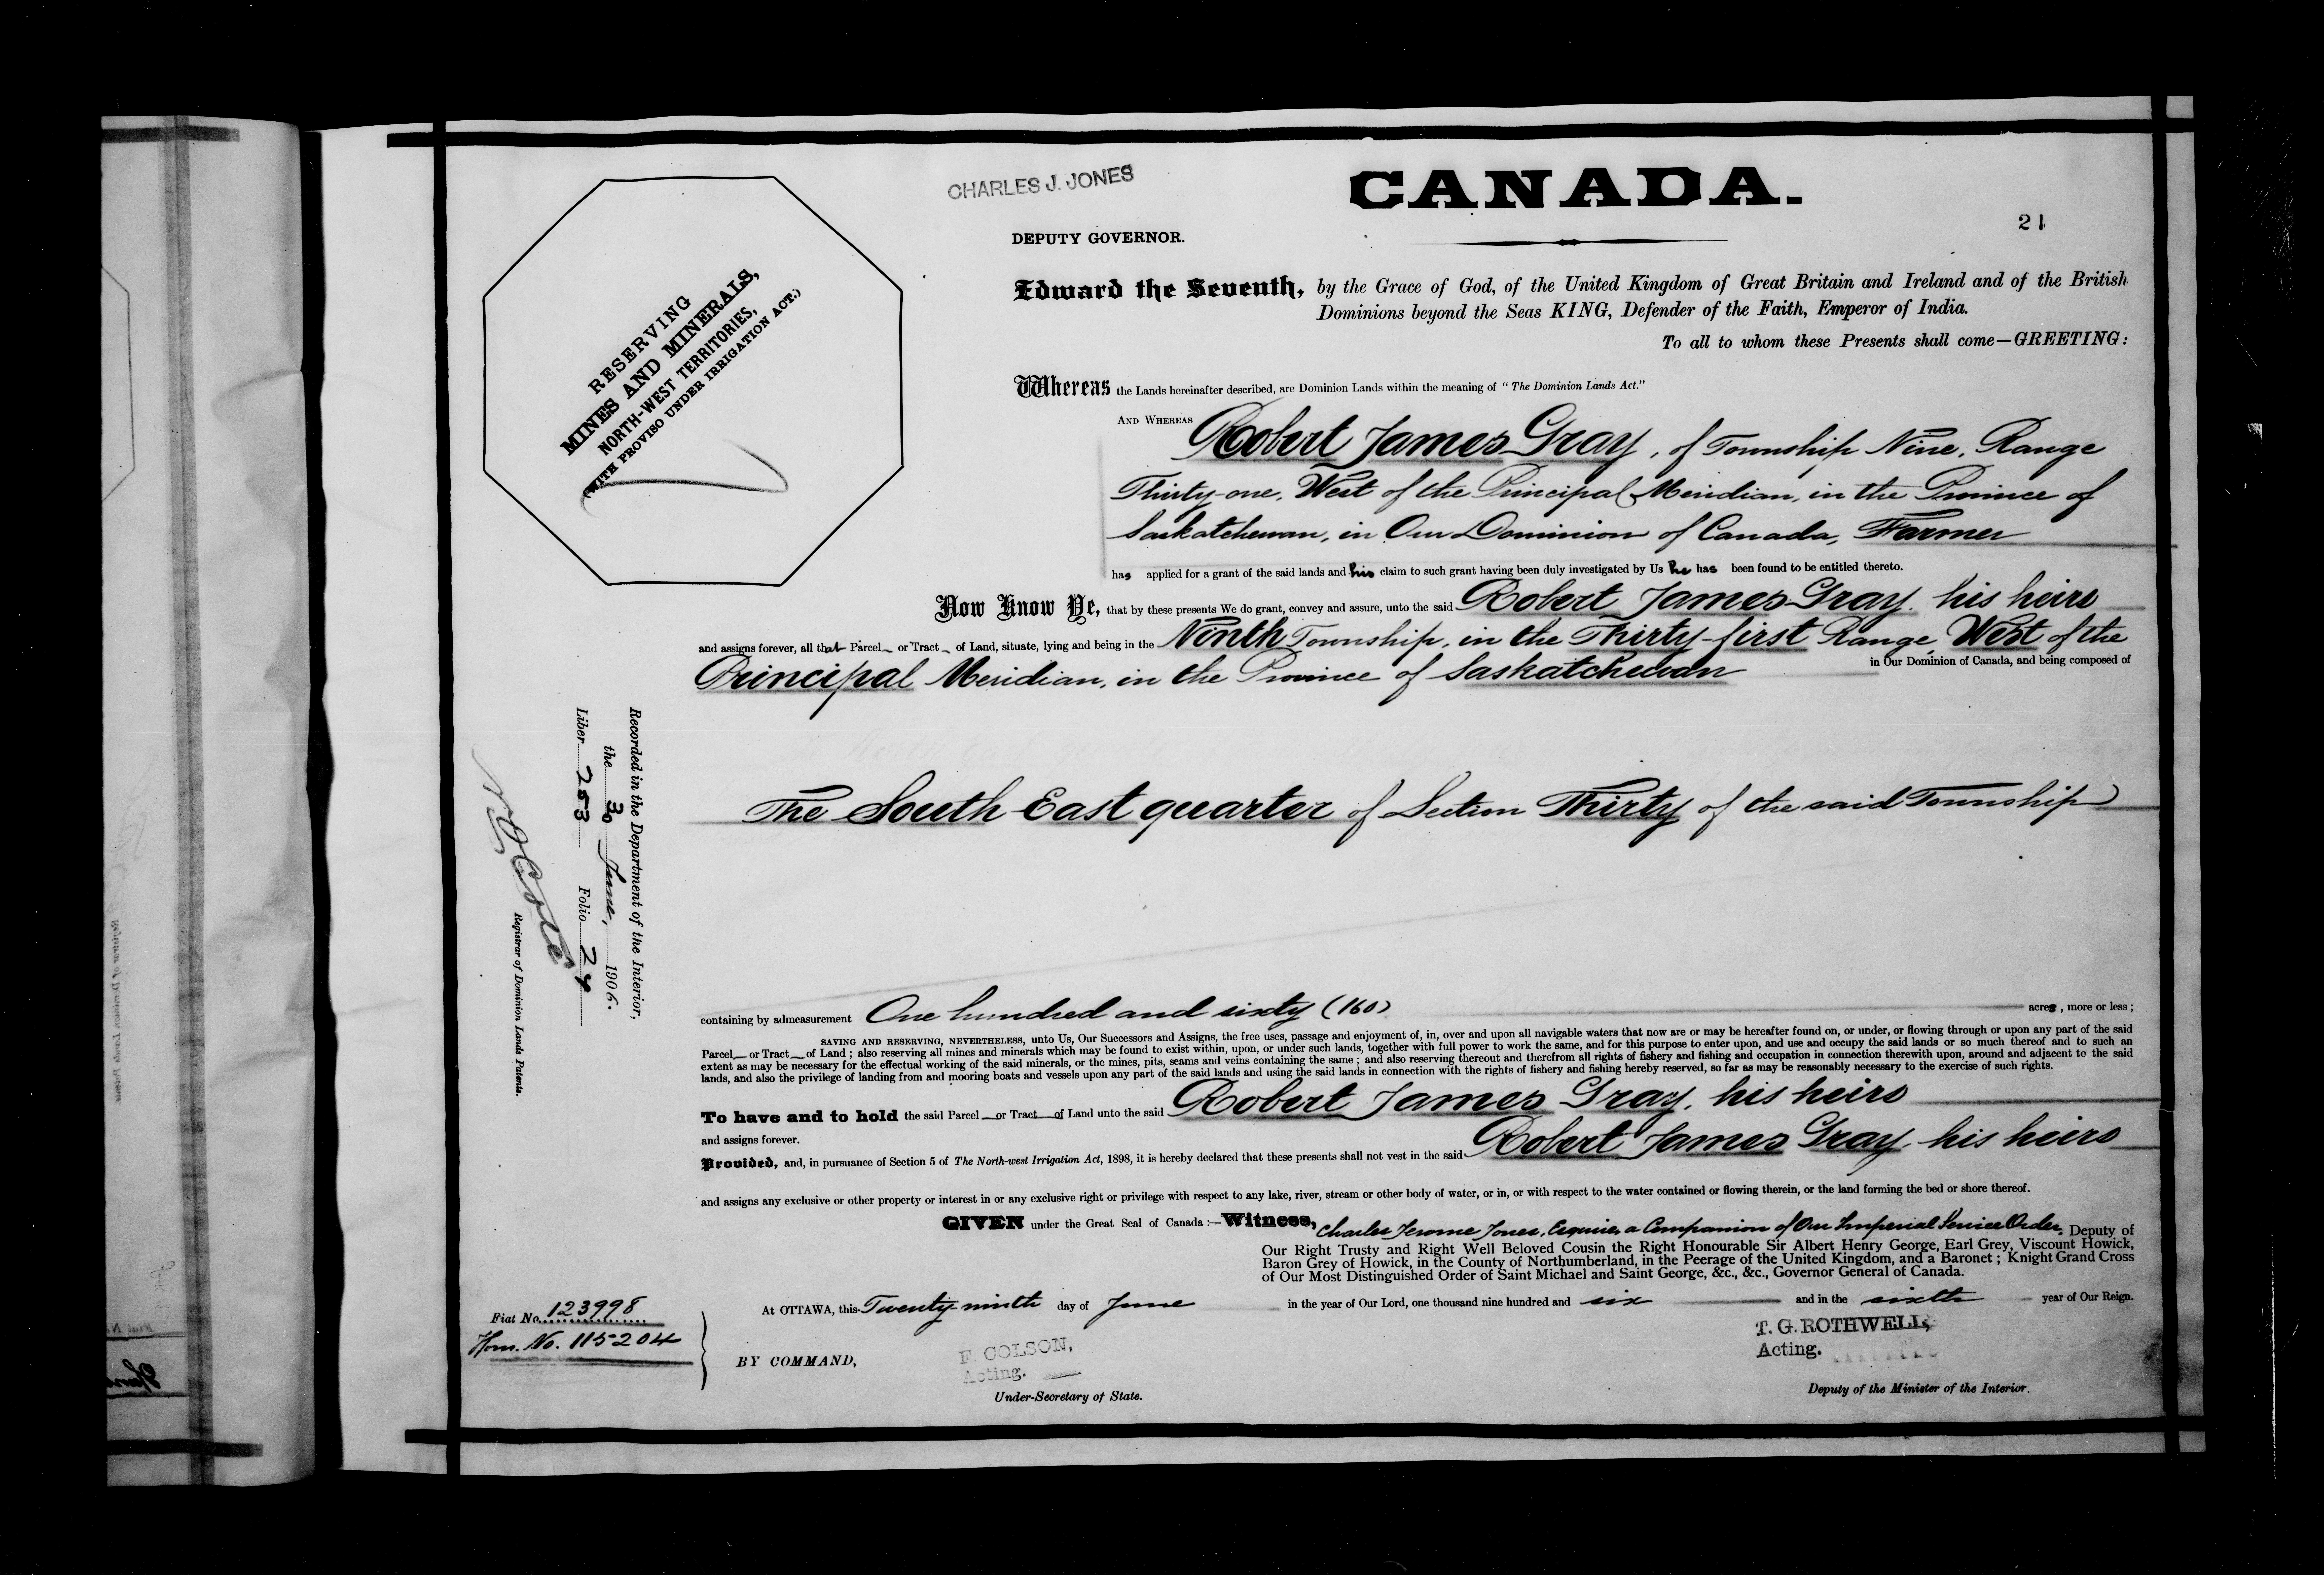 CHARLES J. JONES
CANADA.
21
DEPUTY GOVERNOR.
RESERVING
MINES AND MINERALS,
NORTH-WEST TERRITORIES,
(WITH PROVISO UNDER IRRIGATION ACT.)
Edward the Seventh, by the Grace of God, of the United Kingdom of Great Britain and Ireland and of the British
Dominions beyond the Seas KING, Defender of the Faith, Emperor of India.
To all to whom these Presents shall come—GREETING:
Whereas the Lands hereinafter described, are Dominion Lands within the meaning of "The Dominion Lands Act."
AND WHEREAS Robert James Gray, of Township Nine, Range
Thirty-one, West of the Principal Meridian, in the Province of
Saskatchewan, in Our Dominion of Canada, Farmer
has applied for a grant of the said lands and his claim to such grant having been duly investigated by Us he has been found to be entitled thereto.
Now Know Ye, that by these presents We do grant, convey and assure, unto the said Robert James Gray, his heirs
and assigns forever, all that Parcel or Tract of Land, situate, lying and being in the Ninth Township, in the Thirty-first Range, West of the
Principal Meridian, in the Province of Saskatchewan in Our Dominion of Canada, and being composed of
The South East quarter of Section Thirty of the said Township
Recorded in the Department of the Interior,
the 30 June, 1906.
Liber 253 Folio 24
Registrar of Dominion Lands Patents.
containing by admeasurement One hundred and sixty (160) acres, more or less;
SAVING AND RESERVING, NEVERTHELESS, unto Us, Our Successors and Assigns, the free uses, passage and enjoyment of, in, over and upon all navigable waters that now are or may be hereafter found on, or under, or flowing through or upon any part of the said
Parcel or Tract of Land; also reserving all mines and minerals which may be found to exist within, upon, or under such lands, together with full power to work the same, and for this purpose to enter upon, and use and occupy the said lands or so much thereof and to such an
extent as may be necessary for the effectual working of the said minerals, or the mines, pits, seams and veins containing the same; and also reserving thereout and therefrom all rights of fishery and fishing and occupation in connection therewith upon, around and adjacent to the said
lands, and also the privilege of landing from and mooring boats and vessels upon any part of the said lands and using the said lands in connection with the rights of fishery and fishing hereby reserved, so far as may be reasonably necessary to the exercise of such rights.
To have and to hold the said Parcel or Tract of Land unto the said Robert James Gray, his heirs
and assigns forever.
Provided, and, in pursuance of Section 5 of The North-west Irrigation Act, 1898, it is hereby declared that these presents shall not vest in the said Robert James Gray, his heirs
and assigns any exclusive or other property or interest in or any exclusive right or privilege with respect to any lake, river, stream or other body of water, or in, or with respect to the water contained or flowing therein, or the land forming the bed or shore thereof.
GIVEN under the Great Seal of Canada:—Witness, Charles Jerome Jones, Esquire, a Companion of Our Imperial Service Order, Deputy of
Our Right Trusty and Right Well Beloved Cousin the Right Honourable Sir Albert Henry George, Earl Grey, Viscount Howick,
Baron Grey of Howick, in the County of Northumberland, in the Peerage of the United Kingdom, and a Baronet; Knight Grand Cross
of Our Most Distinguished Order of Saint Michael and Saint George, &c., &c., Governor General of Canada.
At OTTAWA, this Twenty-ninth day of June in the year of Our Lord, one thousand nine hundred and six and in the sixth year of Our Reign.
Fiat No. 123998
Hom. No. 115204
BY COMMAND,
F. COLSON,
Acting.
Under-Secretary of State.
T. G. ROTHWELL,
Acting.
Deputy of the Minister of the Interior.